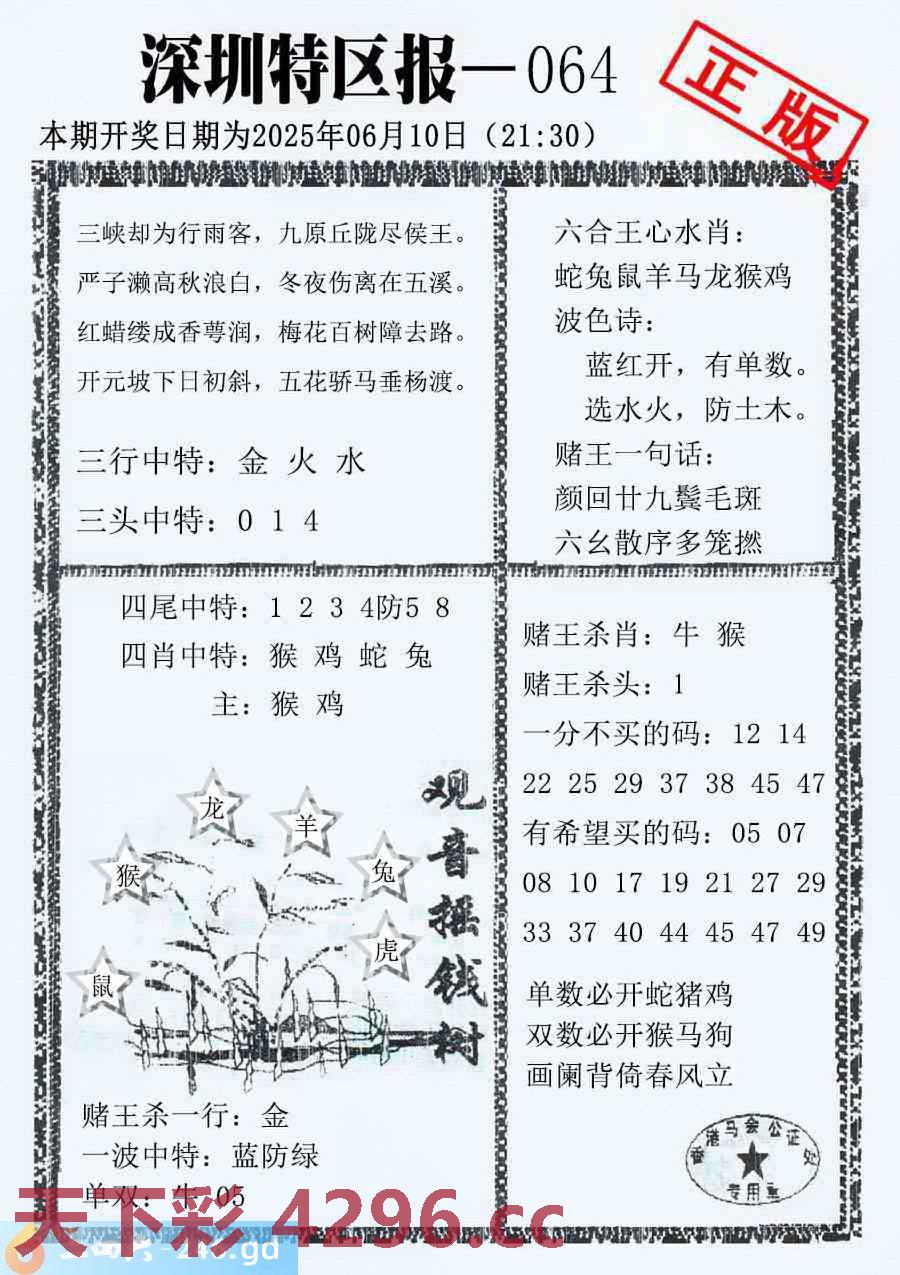 深圳特区报－064
正版
本期开奖日期为2025年06月10日（21:30）
三峡却为行雨客，九原丘陇尽侯王。
严子濑高秋浪白，冬夜伤离在五溪。
红蜡缕成香萼润，梅花百树障去路。
开元坡下日初斜，五花骄马垂杨渡。
三行中特：金 火 水
三头中特：0 1 4
六合王心水肖：
蛇兔鼠羊马龙猴鸡
波色诗：
蓝红开，有单数。
选水火，防土木。
赌王一句话：
颜回廿九鬓毛斑
六幺散序多笼撚
四尾中特：1 2 3 4防5 8
四肖中特：猴 鸡 蛇 兔
主：猴 鸡
龙
羊
猴
兔
虎
鼠
观音摇钱树
赌王杀一行：金
一波中特：蓝防绿
单双：牛 05
赌王杀肖：牛 猴
赌王杀头：1
一分不买的码：12 14
22 25 29 37 38 45 47
有希望买的码：05 07
08 10 17 19 21 27 29
33 37 40 44 45 47 49
单数必开蛇猪鸡
双数必开猴马狗
画阑背倚春风立
香港马会公证处
专用章
天下彩 4296.cc